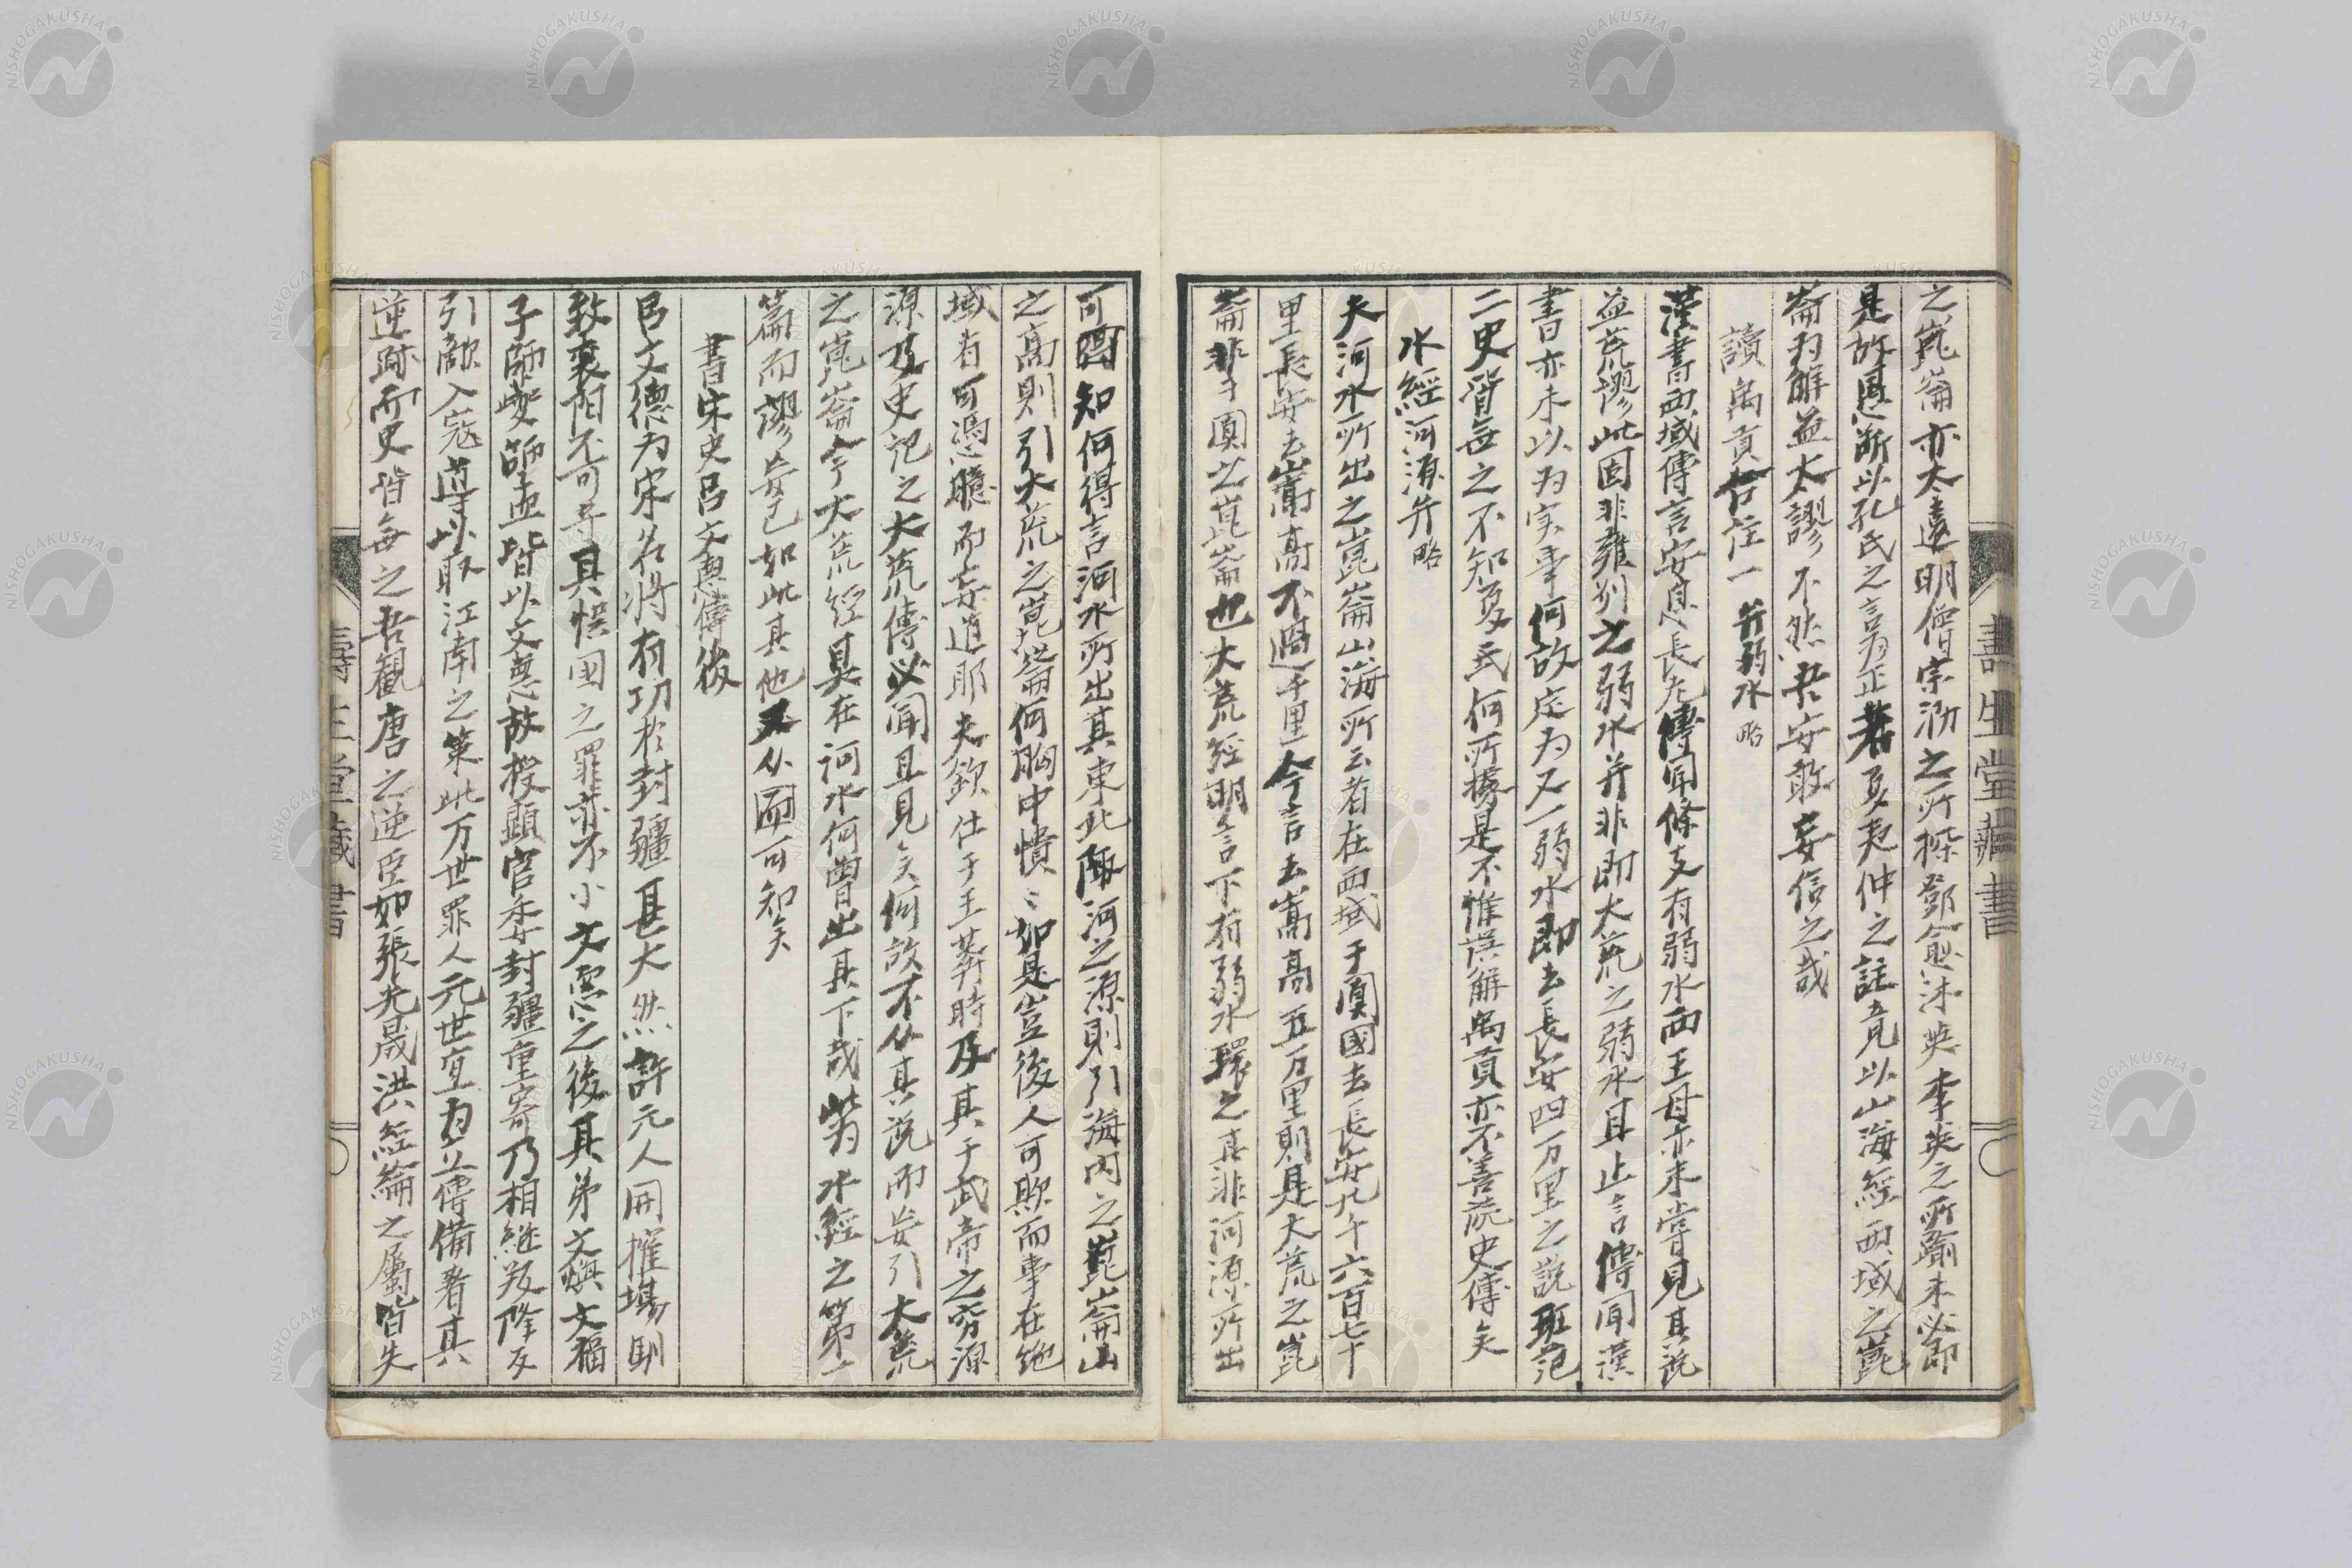 之崑崙亦太遠明僧宗泐之所探鄧愈沐英李英之所踰未必即
是故愚断以孔氏之言为正蔡夏夷仲之註竟以山海經西域之崑
崙为解益太謬不然吾安敢妄信之哉
讀禹貢合注一 弁弱水略
漢書西域傳言安息長老傳聞條支有弱水西王母亦未嘗見其說
益荒謬此固非雍州之弱水并非即大荒之弱水且止言傳聞漢
書亦未以为实事何故定为又一弱水即去長安四万里之說班范
二史皆每之不知夏氏何所據是不惟誤解禹貢亦不善讀史傳矣
水經河源弁略
夫河水所出之崑崙山海所云者在西域于闐國去長安九千六百七十
里長安去嵩高不過千里今言去嵩高五万里則是大荒之崑
崙非于闐之崑崙也大荒經明言下有弱水環之其非河源所出
可囼知何得言河水所出其東北陬河之源則引海内之崑崙山
之高則引大荒之崑崙何胸中憒〻如是豈後人可欺而事在絶
域者可憑臆而妄道耶夫欽仕于王莽時及其于武帝之窮源
源及史記之大荒傳必聞且見矣何故不从其說而妄引大荒
之崑崙今大荒經具在河水何曾出其下哉此为水經之第一
篇而謬妄已如此其他又从而可知矣
書宋史吕文惠傳後
吕文德为宋名將有功於封疆甚大然許元人開榷場則
致襄陽不可守其悞国之罪亦不小文惪之後其弟文焕文福
子師夔師孟皆以文惪故授顯官委封疆重寄乃相継叛降反
引敵入寇導以取江南之策此万世罪人元世宜为立傳備著其
逆跡而史皆每之吾觀唐之逆臣如張光晟洪經綸之屬皆失
壽生堂藏書
壽生堂藏書